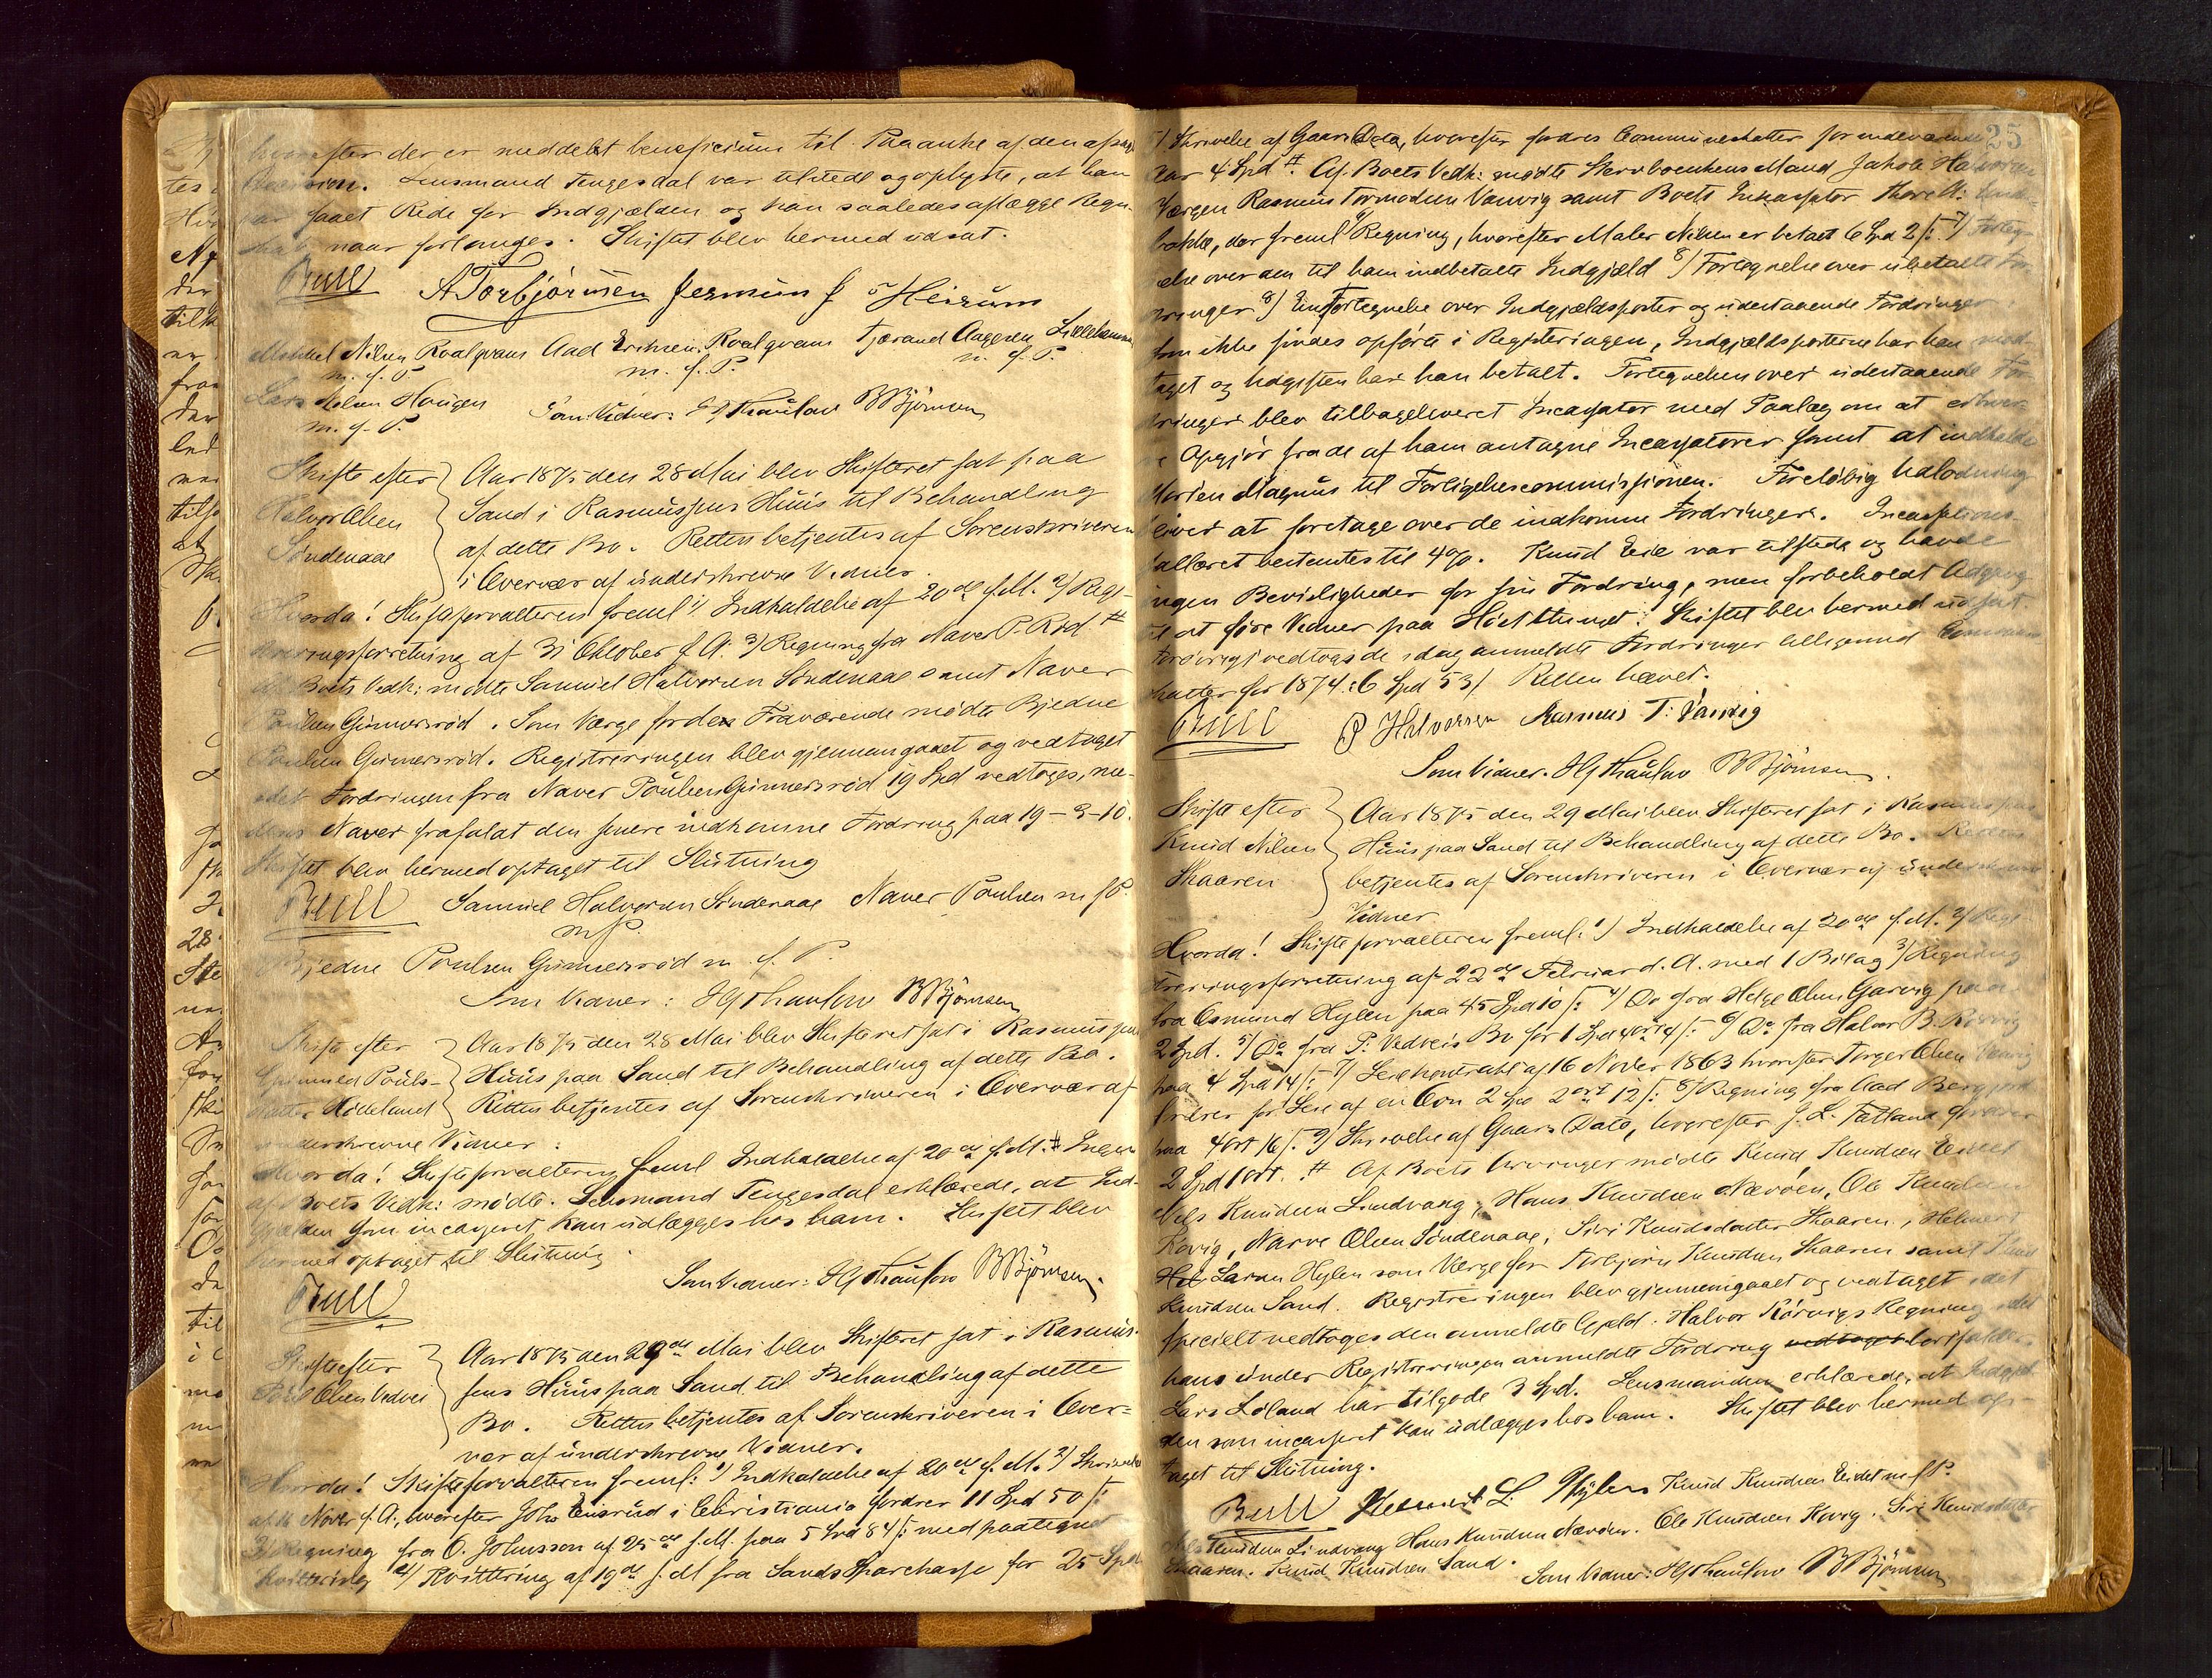 hvorefter der er meddelt beneficium til Paaanke af den afsagte
Decision. Lensmand Tengesdal var tilstede og oplyste, at han
har faaet Rede for Indgjælden og kan saaledes aflægge Regn-
skab, naar forlanges. Skiftet blev hermed udsat.
Bull A Torbjørnsen Jermun J Heirum
Mikkel Nilsen Roalqvam Aad Erichsen Roalqvam Tjerand Aagesen Lillehammer
m. f. P. m. f. P. m. f. P.
Lars Nilsen Haugen Som Vidner: HJ Thaulow BBjørnsen
m. f. P.
Skifte efter Aar 1875 den 28 Mai blev Skifteret sat paa
Halvor Olsen Sand i Rasmussens Huus til Behandling
Søndenaae af dette Bo. Retten betjentes af Sorenskriveren
i Overvær af underskrevne Vidner.
Hvorda! Skifteforvalteren freml 1) Indkaldelse af 20de f.M. 2) Regi-
streringsforretning af 31 Oktober f. A. 3) Regning fra Naver P. Rød #
Af Boets Vedk: mødte Samuel Halvorsen Søndenaae samt Naver
Poulsen Gunnersrød. Som Værge for den Fraværende mødte Bjedne
Poulsen Gunnersrød. Registreringen blev gjennemgaaet og vedtaget
idet Fordringen fra Naver Poulsen Gunnersrød 19 Spd vedtoges, me-
dens Naver frafalt den senere indkomne Fordring paa 19 – 3 – 10.
Skiftet blev hermed optaget til Slutning
Bull Samuel Halvorsen Søndenaae Naver Poulsen m f P.
m f P.
Bjedne Poulsen Gunnersrød m. f. P.
Som Vidner: HJ Thaulow BBjørnsen
Skifte efter Aar 1875 den 28 Mai blev Skifteret sat i Rasmussens
Gunnild Pouls- Huus paa Sand til Behandling af dette Bo.
datter Hødeland Retten betjentes af Sorenskriveren i Overvær af
underskrevne Vidner:
Hvorda! Skifteforvalteren freml Indkaldelse af 20de f.M. # Ingen
af Boets Vedk: mødte. Lensmand Tengesdal erklærede, at Ind-
gjælden som incasseret kan udlægges hos ham. Skiftet blev
hermed optaget til Slutning.
Bull Som Vidner: HJ Thaulow BBjørnsen.
Skifte efter Aar 1875 den 29de Mai blev Skifteret sat i Rasmus-
Poul Olsen Vedvei sens Huus paa Sand til Behandling af dette
Bo. Retten betjentes af Sorenskriveren i Over-
vær af underskrevne Vidner.
Hvorda! Skifteforvalteren freml: 1) Indkaldelse af 20de f. M. 2) Skrivelse
af Novbr f. A., hvorefter John Ensrud i Christiania fordrer 11 Spd 50 ſ:
3) Regning fra O. Johnsson af 25de f.M. paa 5 Spd 84 ſ: med paategnet
Kvittering 4) Kvittering af 19de f. M fra Sands Sparekasse for 25 Spd
25
5) Skrivelse af Gaars Dato, hvorefter fordres Communeskatter for indeværende
Aar 4 Spd #. Af Boets Vedk: mødte Stervboenkens Mand Jakob Halvorsen
Værgen Rasmus Tormodsen Vanvig samt Boets Incassator Thore
bakke, der freml 6) Regning, hvorefter Maler Nilsen er betalt 6 Spd 2 ſ: 7) Forteg-
nelse over den til ham indbetalte Indgjæld 8) Fortegnelse over ubetalte For-
dringer 9) En Fortegnelse over Indgjældsposter og udestaaende Fordringer
som ikke findes opførte i Registeringen, Indgjældsposterne har han mod-
taget og Udgiften har han betalt. Fortegnelsen over udestaaende For-
dringer blev tilbageleveret Incassator med Paalæg om at erhver-
ve Opgjør fra de af ham antagne Incassatorer samt at indkalde
Morten Magnus til Forligelsescommissionen. Foreløbig Udlodning
bliver at foretage over de indkomne Fordringer. Incassations-
salæret bestemtes til 4 %. Knud Eie var tilstede og havde
ingen Bevisligheder for sin Fordring, men forbeholdt Adgang
til at føre Vidner paa Høstthinget. Skiftet blev hermed udsat.
Forøvrigt vedtoges de idag anmeldte Fordringer tilligemed Commune-
skatter for 1874: 6 Spd 53 ſ Retten hævet.
Bull P Halvorsen Rasmus T: Vanvig
Som Vidner. HJ Thaulow BBjørnsen.
Skifte efter Aar 1875 den 29 Mai blev Skifteret sat i Rasmussens
Knud Nilsen Huus paa Sand til Behandling af dette Bo. Retten
Skaaren betjentes af Sorenskriveren i Overvær af underskrevne
Vidner
Hvorda! Skifteforvalteren freml: 1) Indkaldelse af 20de f. M. 2) Regi-
streringsforretning af 22de Februar d. A. med 1 Bilag 3) Regning
fra Osmund Hylen paa 45 Spd 10 ſ: 4) Do fra Helge Olsen Garvig paa
2 Spd. 5) Do fra P. Vedveis Bo for 1 Spd 4 ort 4 ſ: 6) Do fra Halvor B. Rørvig
paa 4 Spd 14 ſ: 7) Leiekontrakt af 16 Novbr 1863 hvorefter Torger Olsen Vanvig
fordrer for Leie af en Ovn 2 Spd 2 ort 12 ſ: 8) Regning fra Aad Bergs
paa 4 Ort 16 ſ. 9) Skrivelse af Gaars Dato, hvorefter J. L. Tætland fordrer
2 Spd 1 ort. # Af Boets Arvinger mødte Knud Knudsen Eidet
Nels Knudsen Lindvang, Hans Knudsen Nærøen, Ole Knudsen
Kovig, Narve Olsen Søndenaae, Siri Knudsdatter Skaaren, Helmert
Hel Larsen Hylen som Værge for Torbjørn Knudsen Skaaren samt Knud
Knudsen Sand. Registreringen blev gjennemgaaet og vedtaget idet
specielt vedtoges den anmeldte Gjæld: Halvor Rørvigs Regning idet
hans under Registreringen anmeldte Fordring vedtoges bortfalder.
Lars Løland har tilgode 3 Spd. Lensmanden erklærede, at Indgjæl-
den som incasseret kan udlægges hos ham. Skiftet blev hermed op-
taget til Slutning.
Bull Helmert L: Hylen Knud Knudsen Eidet m f P.
Nels Knudsen Lindvang Hans Knudsen Nærøen. Ole Knudsen Kovig. Siri Knudsdatter
Skaaren. Knud Knudsen Sand. Som Vidner: HJ Thaulow BBjørnsen